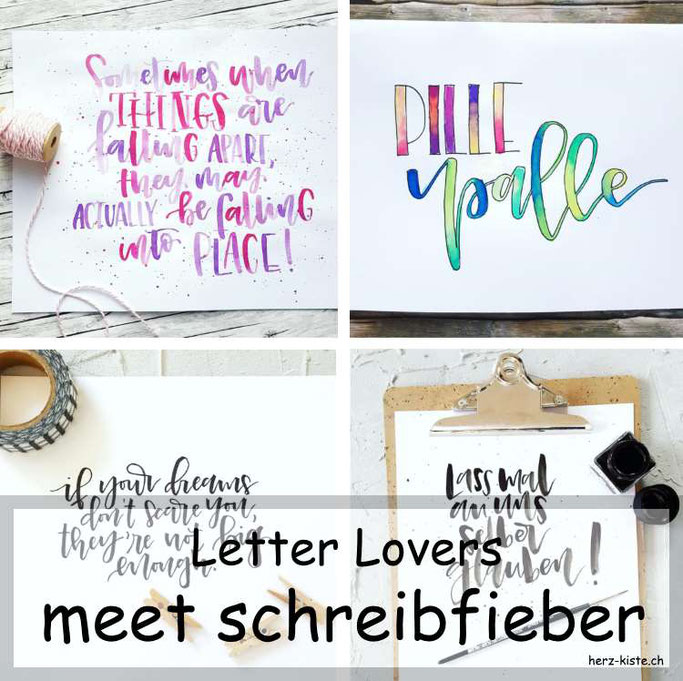 Sometimes when
THINGS are
falling APART,
they may
ACTUALLY be falling
into PLACE!
DILLE
palle
if your dreams
don't scare you,
they're not big
enough.
Lass mal
an uns
selber
glauben!
Letter Lovers
meet schreibfieber
herz-kiste.ch